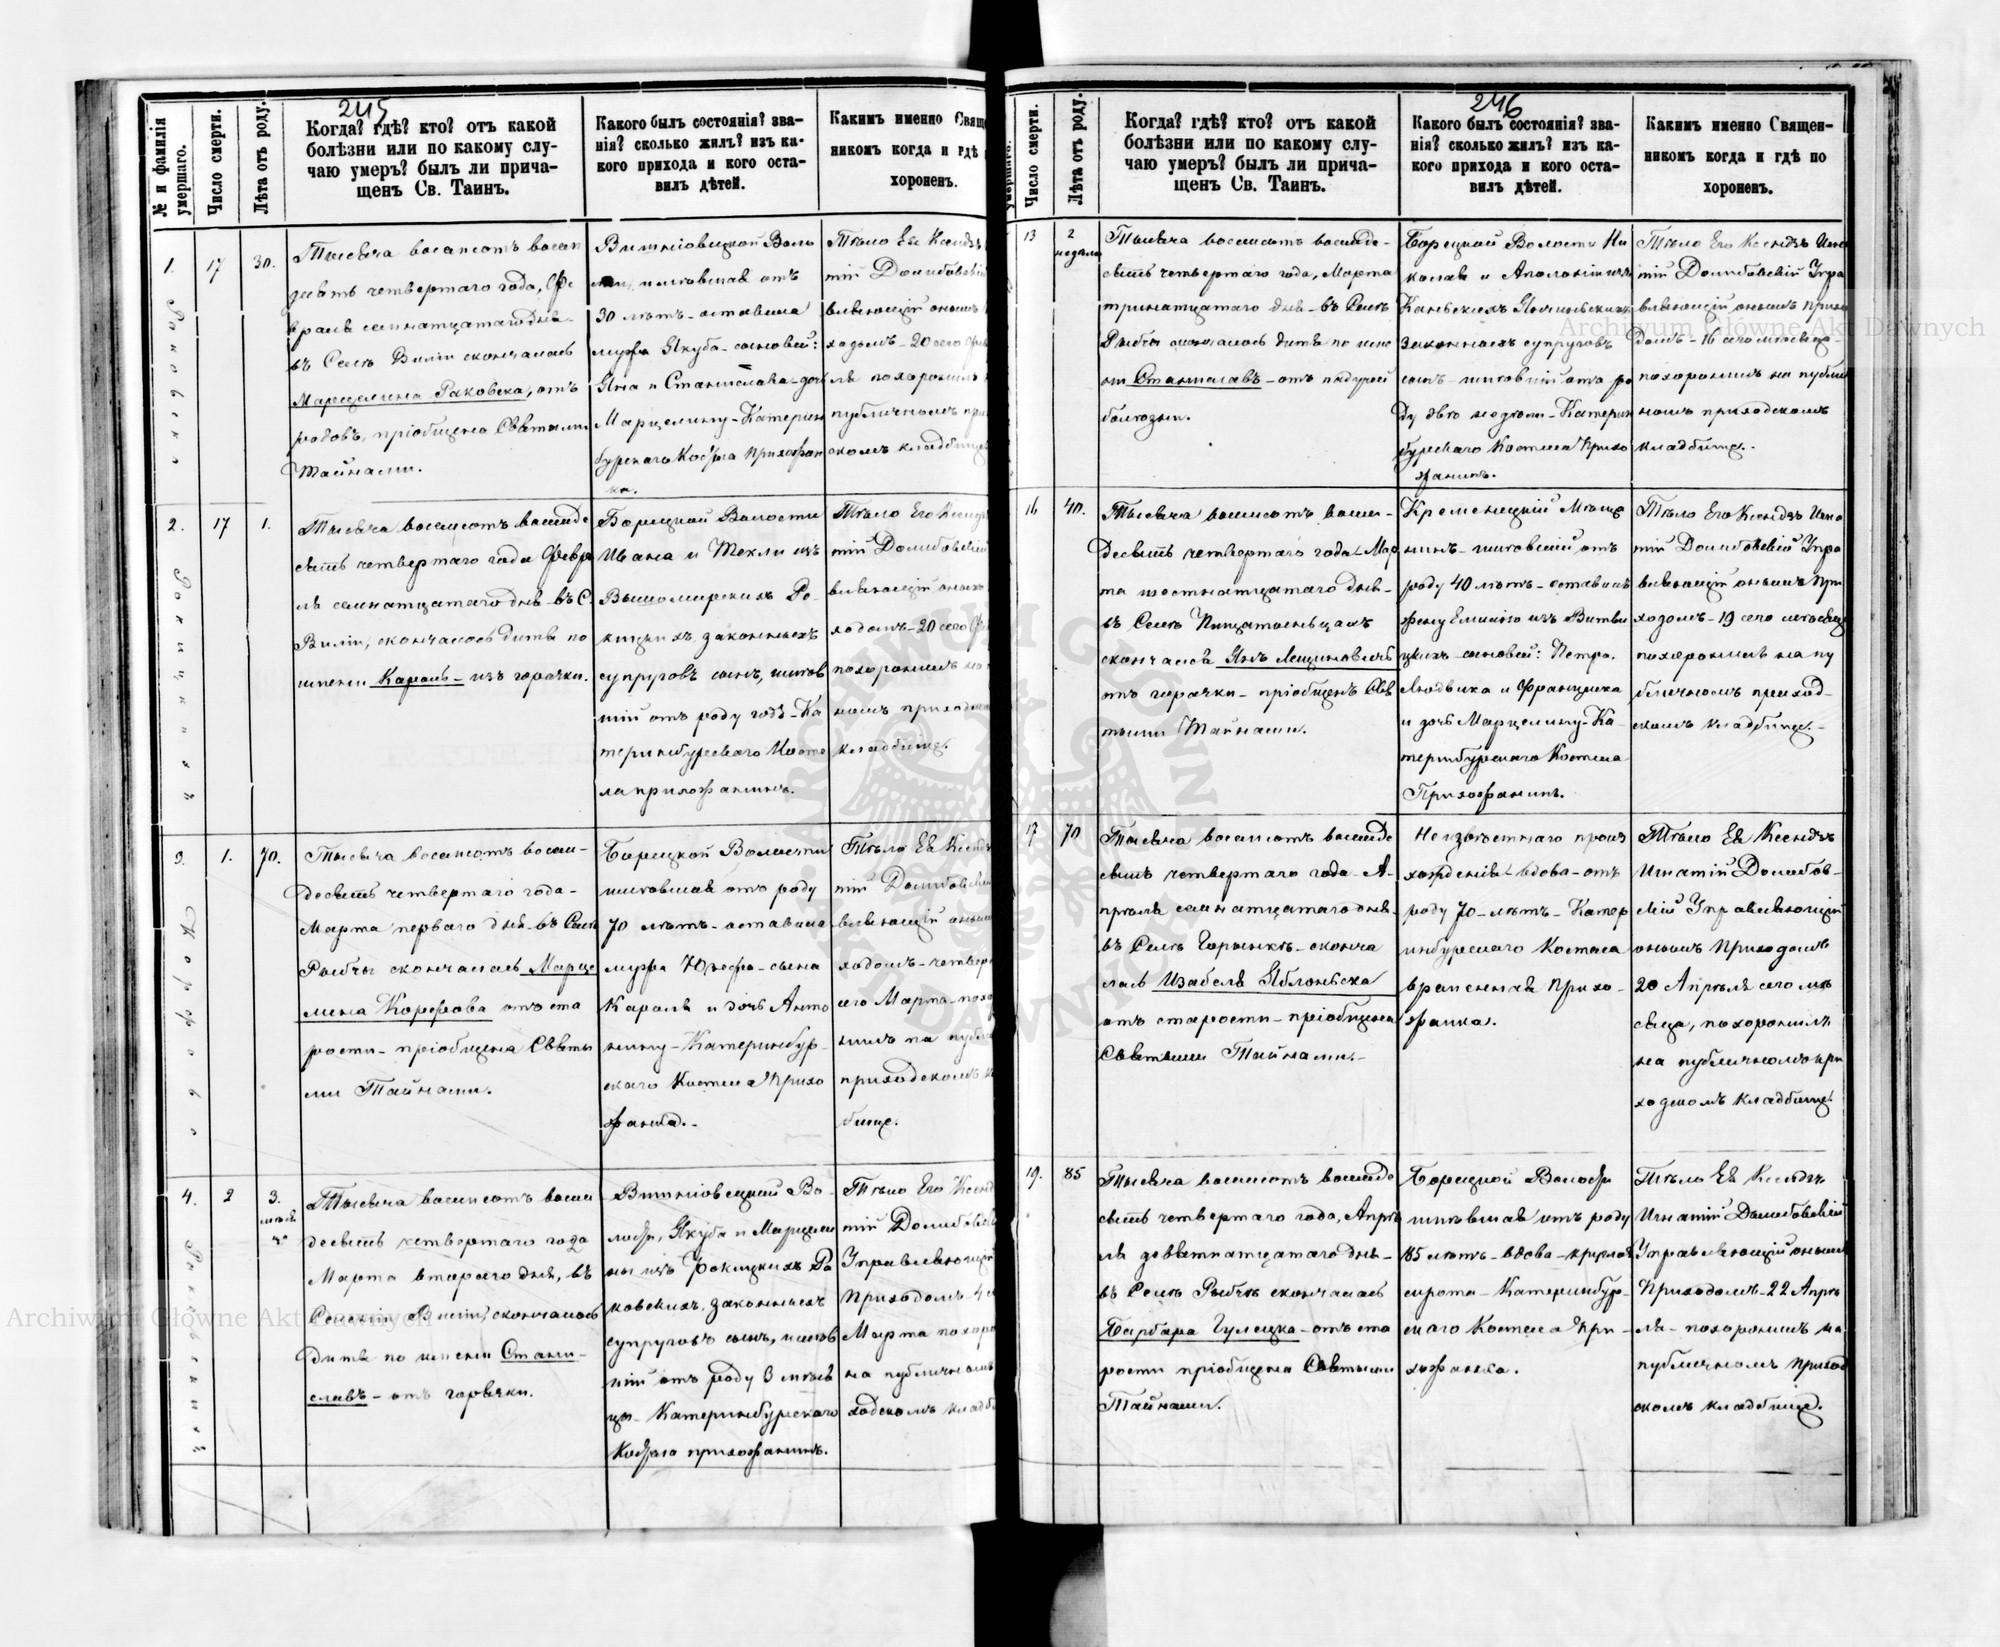 245
№ и фамилія умершаго.
Число смерти.
Лѣта отъ роду.
Когда? гдѣ? кто? отъ какой
болѣзни или по какому слу-
чаю умеръ? былъ ли прича-
щенъ Св. Таинъ.
Какого былъ состоянія? зва-
нія? сколько жилъ? изъ ка-
кого прихода и кого оста-
вилъ дѣтей.
Какимъ именно Свяще
никомъ когда и гдѣ
хороненъ.
1.
17
30.
Тысяча восемсотъ восем
десятъ четвертаго года, Фе
враля семнатцатаго дня
въ Селѣ Виліи скончалась
Марцелина Раковска, отъ
родовъ, пріобщена Святыми
Тайнами.
Вишніовецкой Воло
сти, жившая отъ
30 лѣтъ - оставила
мужа Якуба - сыновей:
Яна и Станислава - дочь
Марцелину - Катерин
бурскаго Костела Прихожан
ка.
Тѣло Ея Ксендзъ
тій Домбовскій
вляющій онымъ
ходомъ - 20 сего Фев
ля похоронилъ
публичномъ при
скомъ кладбищѣ
2.
17
1.
Тысяча восемсотъ восемде
сятъ четвертаго года Февра
ля семнатцатаго дня въ С.
Виліи, скончалось дитя по
имени Кароль - изъ горячки.
Борецкой Волости
Ивана и Текли изъ
Вышомирскихъ Ро-
кицкихъ, законныхъ
супруговъ сынъ, жив
шій отъ роду годъ - Ка
теринбурскаго Косте
ла прихожанинъ.
Тѣло Его Ксендзъ
тій Домбовскій
вляющій онымъ
ходомъ - 20 сего Фев
похоронилъ на
номъ приходско
кладбищѣ.
3.
1.
70.
Тысяча восемсотъ восем-
десятъ четвертаго года -
Марта перваго дня - въ Селѣ
Рыбчы скончалась Марце
лина Корфова отъ ста
рости - пріобщена Святы
ми Тайнами.
Борецкой Волости
жившая отъ роду
70 лѣтъ - оставила
мужа Юзефа - сына
Кароля и дочь Анто
нину - Катеринбур-
скаго Костела Прихо
жанка.-
Тѣло Ея Ксендзъ
тій Домбовскій
вляющій онымъ
ходомъ - четвер
его Марта - похо
нилъ на публи
приходскомъ к
бищѣ.
4.
2
3.
Тысяча восемсотъ восем
десятъ четвертаго года
Марта втораго дня, въ
Селеніи Виліи, скончалось
дитя по имени Стани-
славъ - отъ горячки.
Вишніовецкой Во-
лости, Якуба и Марцели
ны изъ Рокицкихъ Ра
ковскихъ, законныхъ
супруговъ сынъ, жив
шій отъ роду 3 мѣся
цы - Катеринбурскаго
Костела прихожанинъ.
Тѣло Его Ксенд
тій Домбовск
Управляющій
Приходомъ - 4
Марта похоро
на публичномъ
ходскомъ кладб
246
умершаго.
Число смерти.
Лѣта отъ роду.
Когда? гдѣ? кто? отъ какой
болѣзни или по какому слу-
чаю умеръ? былъ ли прича-
щенъ Св. Таинъ.
Какого былъ состоянія? зва-
нія? сколько жилъ? изъ ка-
кого прихода и кого оста-
вилъ дѣтей.
Какимъ именно Священ-
никомъ когда и гдѣ по
хороненъ.
13
2
недѣли
Тысяча восемсотъ восемде-
сятъ четвертаго года, Марта
тринатцатаго дня - въ Селѣ
Рыбчы скончалось дитя по име
ни Станиславъ - отъ падучей
болѣзни.
Борецкой Волости Ни
колая и Аполоніи изъ
законныхъ супруговъ
сынъ - жившій отъ ро
ду двѣ недѣли - Катерин
бурскаго Костела Прихо
жанинъ.
Тѣло Его Ксендзъ Игна
тій Домбовскій Упра
вляющій онымъ Прихо
домъ - 16 сего мѣсяца -
похоронилъ на публич
номъ приходскомъ
кладбищѣ.
16
40.
Тысяча восемсотъ восем-
десятъ четвертаго года - Мар
та шестнатцатаго дня -
въ Селѣ
скончался Янъ Лещиновичъ
отъ горячки - пріобщенъ Свя
тыми Тайнами.
Кременецкій Мѣща
нинъ - жившій отъ
роду 40 лѣтъ - оставилъ
жену Емилію изъ Витви
цкихъ - сыновей: Петра.
Людвика и Францишка
и дочь Марцелину - Ка-
теринбурскаго Костела
Прихожанинъ.
Тѣло Его Ксендзъ Игна
тій Домбовскій Упра
вляющій онымъ При
ходомъ - 19 сего мѣсяца
похоронилъ на пу
бличномъ приход-
скомъ кладбищѣ. -
17
70
Тысяча восемсотъ восемде
сятъ четвертаго года - А-
прѣля семнатцатаго дня
въ Селѣ Горынкѣ - сконча
лась Изабеля Яблоньска
отъ старости - пріобщена
Святыми Тайнами. -
Неизвѣстнаго проиc
хожденія - вдова - отъ
роду 70 - лѣтъ - Катер
инбурскаго Костела
временная Прихо-
жанка.
Тѣло Ея Ксендзъ
Игнатій Домбов-
скій Управляющій
онымъ Приходомъ
20 Апрѣля сего мѣ
сяца, похоронилъ
на публичномъ при
ходскомъ кладбищѣ
19.
85
Тысяча восемсотъ восемде
сятъ четвертаго года, Апрѣ
ля девятнатцатаго дня -
въ Селѣ Рыбчѣ скончалась
Барбара Гулецка - отъ ста
рости пріобщена Святыми
Тайнами.
Борецкой Волости
жившая отъ роду
85 лѣтъ - вдова - круглая
сирота - Катеринбур-
скаго Костела При-
хожанка.
Тѣло Ея Ксендзъ
Игнатій Домбовскій
Управляющій онымъ
Приходомъ - 22 Апрѣ
ля - похоронилъ на
публичномъ Приход
скомъ кладбищѣ.
Archiwum Główne Akt Dawnych
Archiwum Główne Akt Dawnych
ARCHIWUM GŁÓWNE AKT DAWNYCH